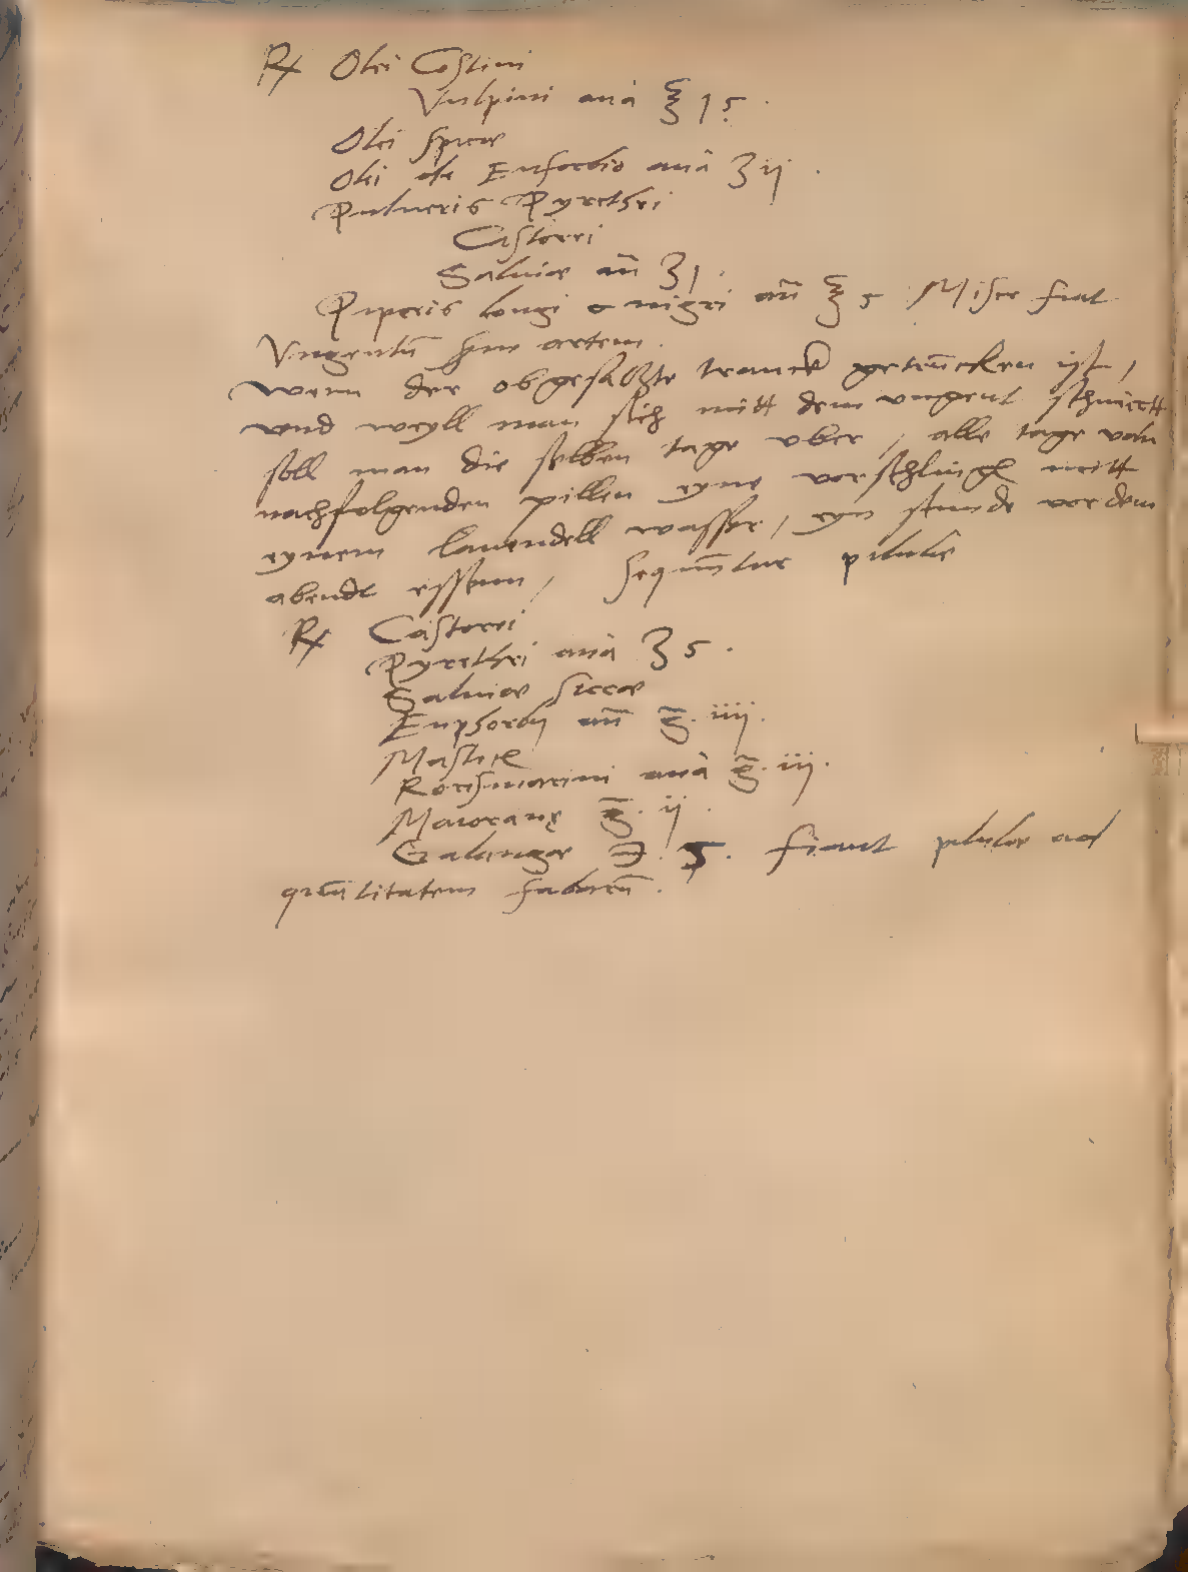 ℞ Olei Costini
Vulpini ana ℥ 1 s.
Olei spicæ
Olei de Euforbio ana ʒ ij.
Pulueris Pyrethri
Castorei
Saluiæ añ ʒ 1.
Piperis longi & nigri añ ℥ s Misce fiat
Vngentū scdm artem.
wenn der obgesaczte tranck getrūcken ist,
vnd weyll man sich mitt dem vngent schmiertt
soll man die selben tage vber, alle tage von
nachfolgenden pillen eyne vorschlingē mitt
eynem lauendell wasser, eyn stunde vor dem
abendt essenn, sequūntur pilulæ
℞ Castorei
Pyrethri ana ʒ s.
Saluiæ siccæ
Euphorbij añ g̃. iiij.
Mastic
Rorismarini ana g̃. iij.
Maioranę g̃. ij.
Galangæ ℈. s. fiant pilulæ ad
quātitatem fabarū.